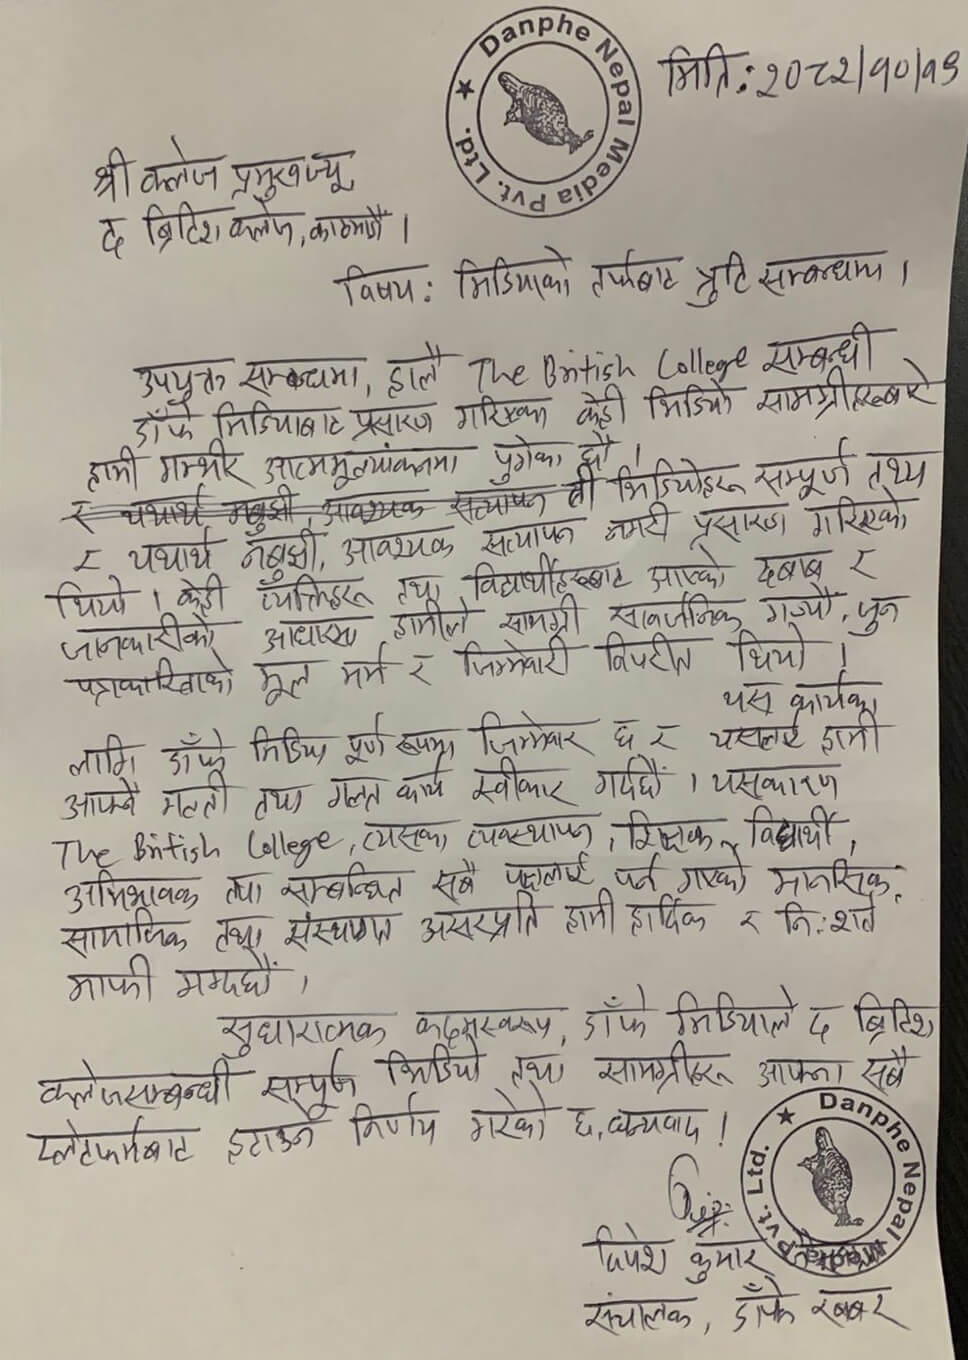 Danphe Nepal Media Pvt. Ltd.
मिति: २०८२/१०/१९
श्री कलेज प्रमुखज्यू
द ब्रिटिश कलेज, काठमाडौं ।
विषय: मिडियाको तर्फबाट त्रुटि सम्बन्धमा ।
उपर्युक्त सम्बन्धमा, हालै The British College सम्बन्धी
डाँफे मिडियाबाट प्रसारण गरिएका केही भिडियो सामग्रीहरूबारे
हामी गम्भीर आत्ममूल्यांकनमा पुगेका छौं ।
र यथार्थ नबुझी, आवश्यक सत्यापन ती भिडियोहरू सम्पूर्ण तथ्य
र यथार्थ नबुझी, आवश्यक सत्यापन नगरी प्रसारण गरिएको
थियो । केही व्यक्तिहरू तथा विद्यार्थीहरूबाट आएको दबाब र
जानकारीको आधारमा हामीले सामग्री सार्वजनिक गर्‍यौं, जुन
पत्रकारिताको मूल मर्म र जिम्मेवारी विपरीत थियो ।
यस कार्यका
लागि डाँफे मिडिया पूर्ण रूपमा जिम्मेवार छ र यसलाई हामी
आफ्नै गल्ती तथा गलत कार्य स्वीकार गर्दछौं । यसकारण
The British College, त्यसका व्यवस्थापन, शिक्षक, विद्यार्थी,
अभिभावक तथा सम्बन्धित सबै पक्षलाई पर्न गएको मानसिक,
सामाजिक तथा संस्थागत असरप्रति हामी हार्दिक र नि:शर्त
माफी माग्दछौं ।
सुधारात्मक कदमस्वरूप, डाँफे मिडियाले द ब्रिटिश
कलेजसम्बन्धी सम्पूर्ण भिडियो तथा सामग्रीहरू आफ्ना सबै
प्लेटफर्मबाट हटाउने निर्णय गरेको छ, धन्यवाद ।
Danphe Nepal Media Pvt. Ltd.
दिपेश कुमार
संचालक, डाँफे खबर